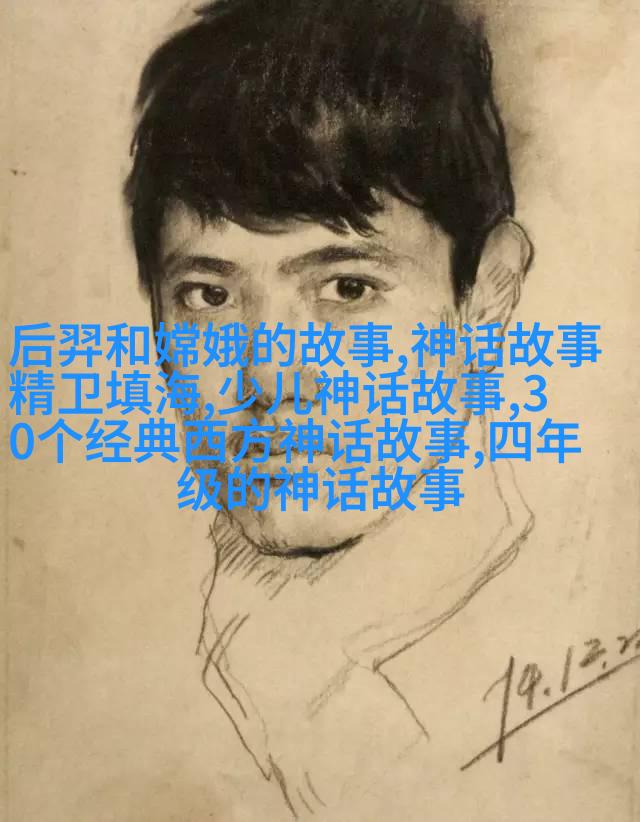 后羿和嫦娥的故事,神话故事
精卫填海,少儿神话故事,3
0个经典西方神话故事,四年
级的神话故事